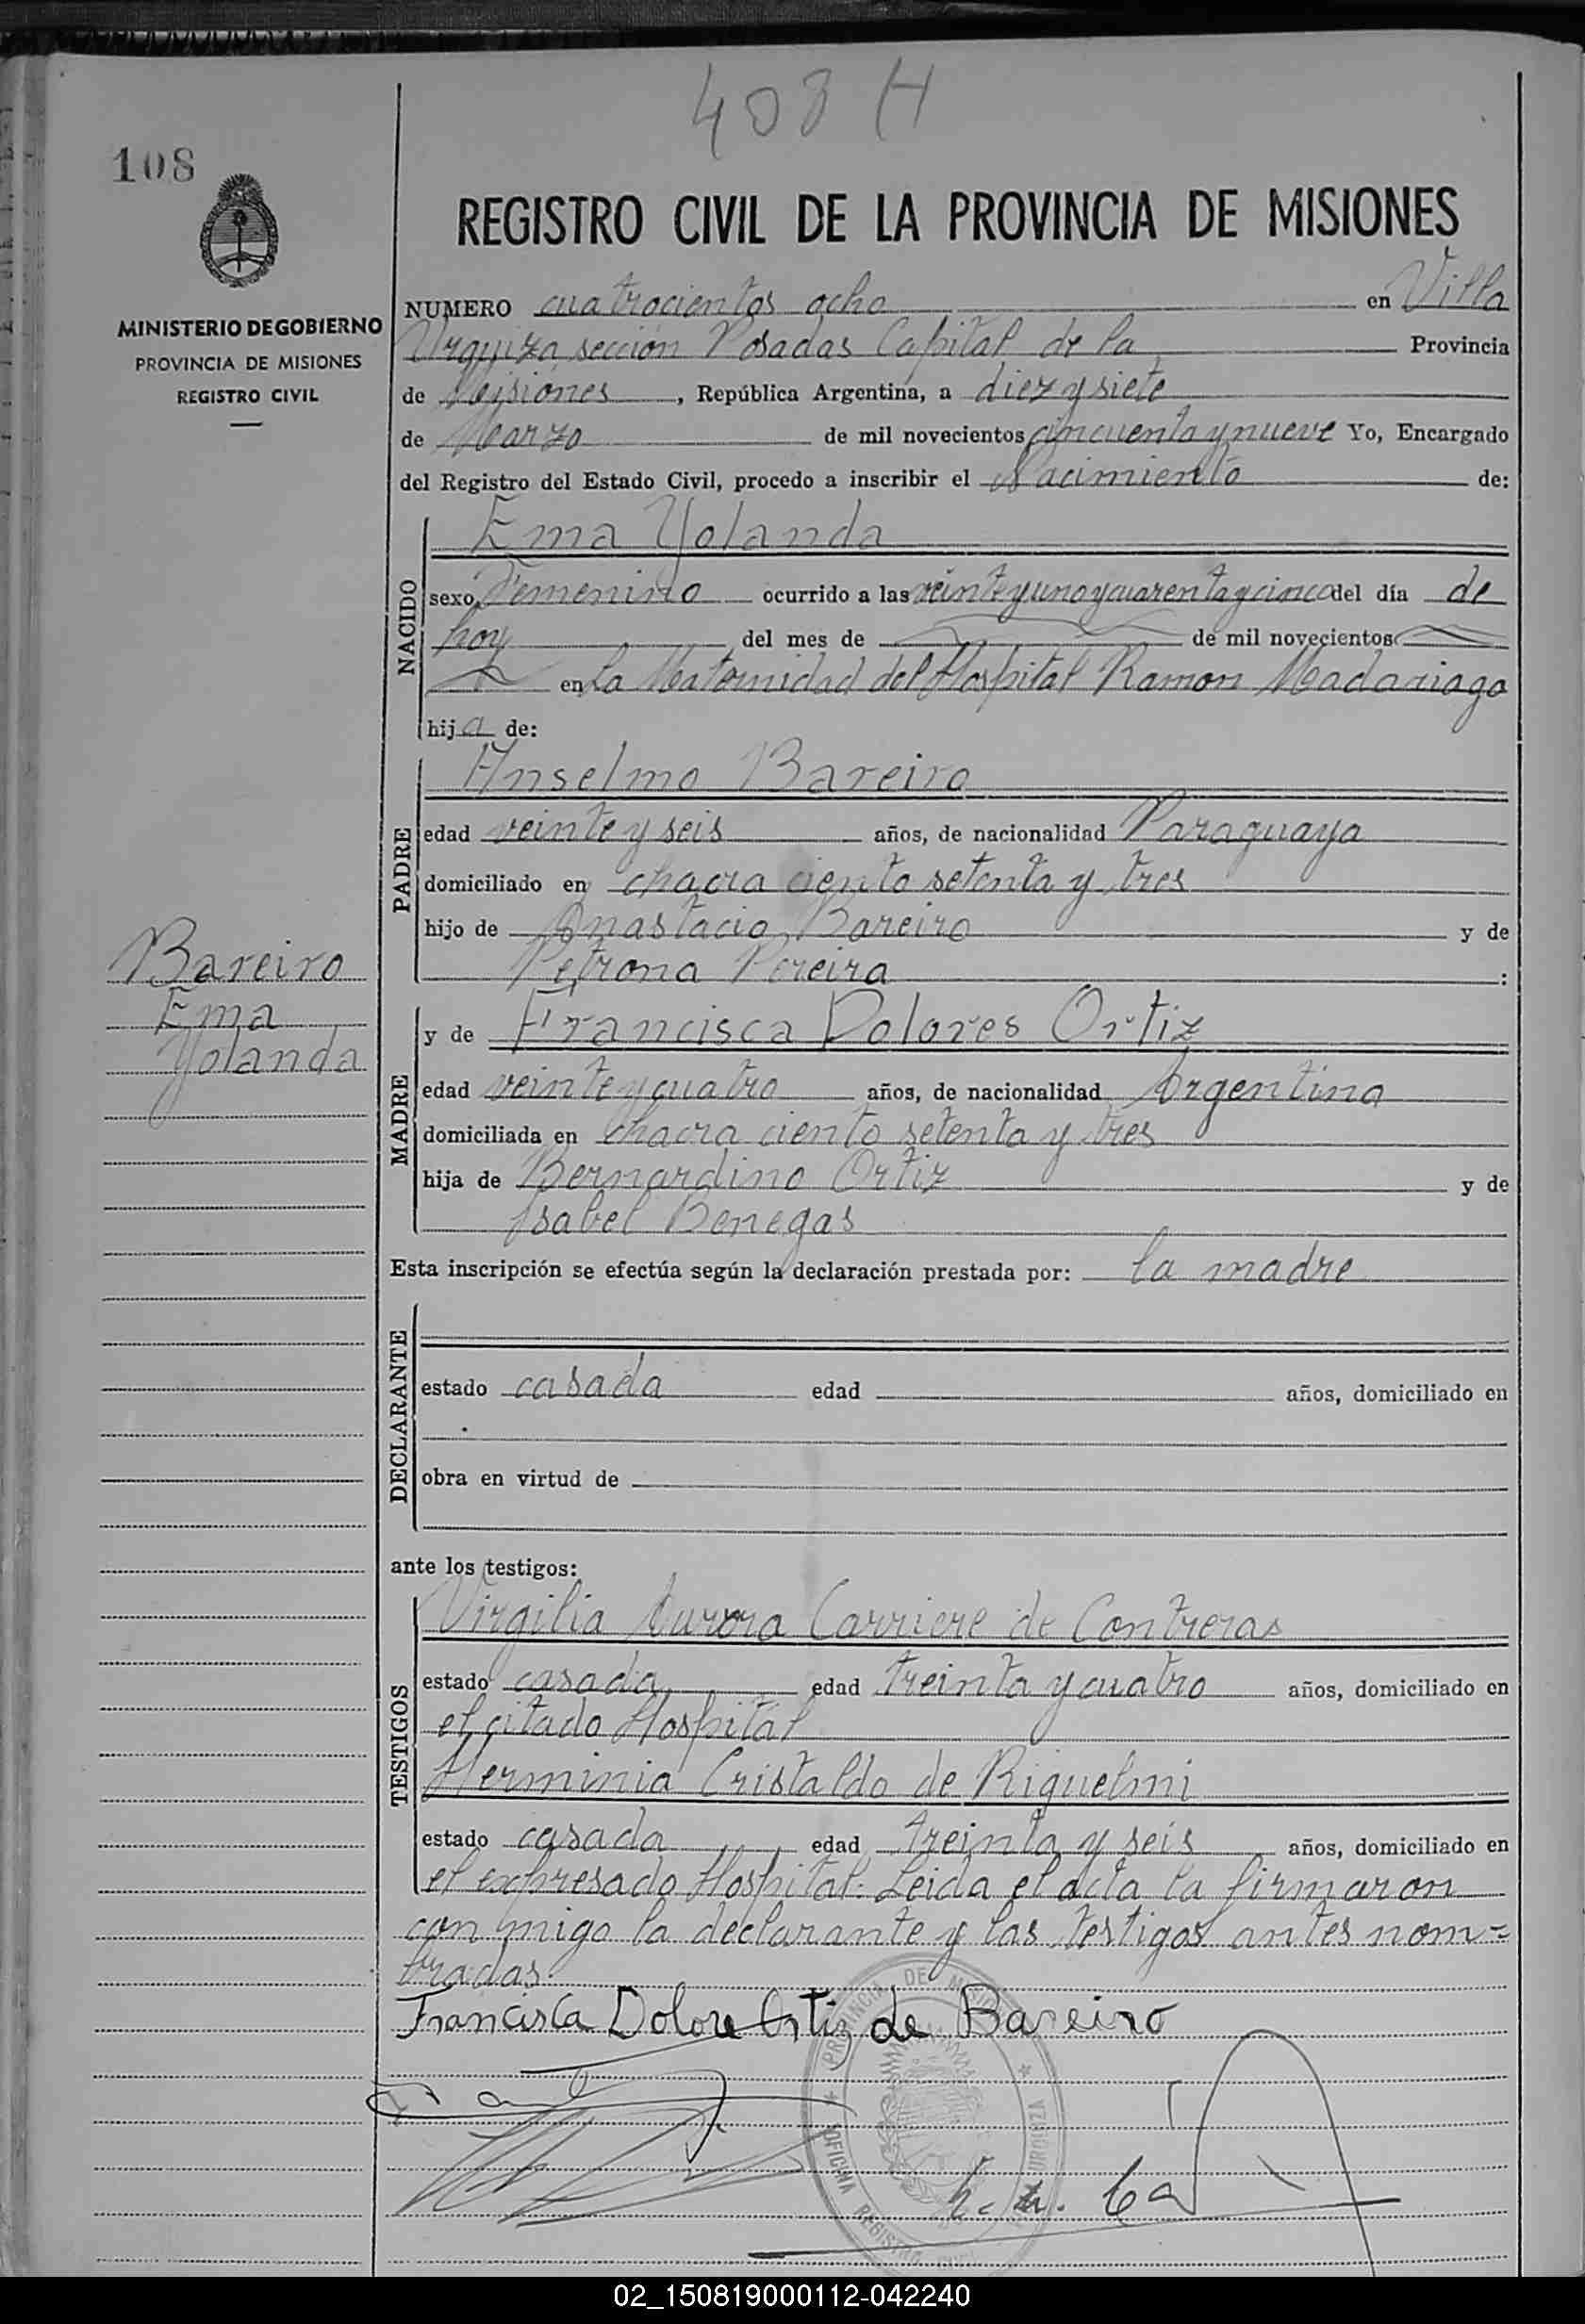 408 H
108
REGISTRO CIVIL DE LA PROVINCIA DE MISIONES
MINISTERIO DE GOBIERNO
PROVINCIA DE MISIONES
REGISTRO CIVIL
NUMERO cuatrocientos ocho en Villa
Urquiza sección Posadas Capital de la Provincia
de Misiones, República Argentina, a diez y siete
de Marzo de mil novecientos cincuenta y nueve Yo, Encargado
del Registro del Estado Civil, procedo a inscribir el Nacimiento de:
NACIDO
Ema Yolanda
sexo Femenino ocurrido a las veinte y uno y cuarenta y cinco del día de
hoy del mes de de mil novecientos
en La Maternidad del Hospital Ramon Madariaga
hija de:
PADRE
Anselmo Bareiro
edad veinte y seis años, de nacionalidad Paraguaya
domiciliado en chacra ciento setenta y tres
hijo de Anastacio Bareiro y de
Petrona Pereira :
Bareiro
Ema
Yolanda
MADRE
y de Francisca Dolores Ortiz
edad veinte y cuatro años, de nacionalidad Argentina
domiciliada en chacra ciento setenta y tres
hija de Bernardino Ortiz y de
Isabel Benegas
Esta inscripción se efectúa según la declaración prestada por: la madre
DECLARANTE
estado casada edad años, domiciliado en
obra en virtud de
ante los testigos:
TESTIGOS
Virgilia Aurora Carriere de Contreras
estado casada edad treinta y cuatro años, domiciliado en
el citado Hospital
Herminia Cristaldo de Riquelmi
estado casada edad treinta y seis años, domiciliado en
el expresado Hospital: Leida el acta la firmaron
conmigo la declarante y las testigos antes nom=
bradas.
Francisca Dolore Ortiz de Bareiro
PROVINCIA DE MISIONES
OFICINA REGISTRO CIVIL URQUIZA
02_150819000112-042240